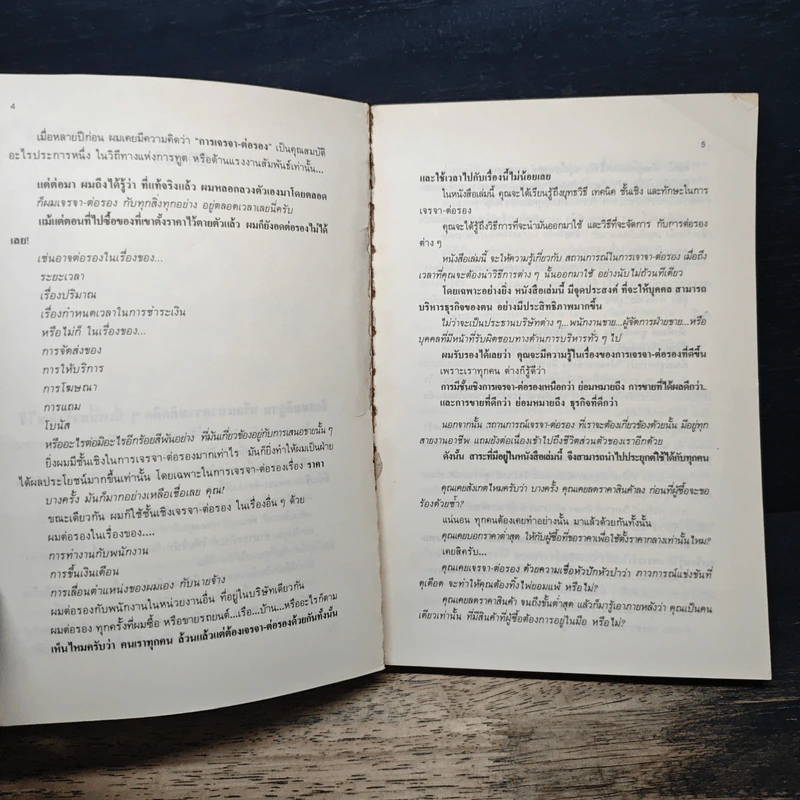 4
เมื่อหลายปีก่อน ผมเคยมีความคิดว่า "การเจรจา-ต่อรอง" เป็นคุณสมบัติ
อะไรประการหนึ่ง ในวิถีทางแห่งการทูต หรือด้านแรงงานสัมพันธ์เท่านั้น...
แต่ต่อมา ผมถึงได้รู้ว่า ที่แท้จริงแล้ว ผมหลอกลวงตัวเองมาโดยตลอด
ก็ผมเจรจา-ต่อรอง กับทุกสิ่งทุกอย่าง อยู่ตลอดเวลาเลยนี่ครับ
แม้แต่ตอนที่ไปซื้อของที่เขาตั้งราคาไว้ตายตัวแล้ว ผมก็ยังอดต่อรองไม่ได้
เลย!
เช่นอาจต่อรองในเรื่องของ...
ระยะเวลา
เรื่องปริมาณ
เรื่องกำหนดเวลาในการชำระเงิน
หรือไม่ก็ ในเรื่องของ...
การจัดส่งของ
การให้บริการ
การโฆษณา
การแถม
โบนัส
หรืออะไรต่อมิอะไรอีกร้อยสีพันอย่าง ที่มันเกี่ยวข้องอยู่กับการเสนอขายนั้น ๆ
ยิ่งผมมีชั้นเชิงในการเจรจา-ต่อรองมากเท่าไร มันก็ยิ่งทำให้ผมเป็นฝ่าย
ได้ผลประโยชน์มากขึ้นเท่านั้น โดยเฉพาะในการเจรจา-ต่อรองเรื่อง ราคา
บางครั้ง มันก็มากอย่างเหลือเชื่อเลย คุณ!
ขณะเดียวกัน ผมก็ใช้ชั้นเชิงเจรจา-ต่อรอง ในเรื่องอื่น ๆ ด้วย
ผมต่อรองในเรื่องของ....
การทำงานกับพนักงาน
การขึ้นเงินเดือน
การเลื่อนตำแหน่งของผมเอง กับนายจ้าง
ผมต่อรองกับพนักงานในหน่วยงานอื่น ที่อยู่ในบริษัทเดียวกัน
ผมต่อรอง ทุกครั้งที่ผมซื้อ หรือขายรถยนต์...เรือ...บ้าน...หรืออะไรก็ตาม
เห็นไหมครับว่า คนเราทุกคน ล้วนแล้วแต่ต้องเจรจา-ต่อรองด้วยกันทั้งนั้น
5
และใช้เวลาไปกับเรื่องนี้ไม่น้อยเลย
ในหนังสือเล่มนี้ คุณจะได้เรียนรู้ถึงยุทธวิธี เทคนิค ชั้นเชิง และทักษะในการ
เจรจา-ต่อรอง
คุณจะได้รู้ถึงวิธีการที่จะนำมันออกมาใช้ และวิธีที่จะจัดการ กับการต่อรอง
ต่าง ๆ
หนังสือเล่มนี้ จะให้ความรู้เกี่ยวกับ สถานการณ์ในการเจาจา-ต่อรอง เมื่อถึง
เวลาที่คุณจะต้องนำวิธีการต่าง ๆ นั้นออกมาใช้ อย่างนับไม่ถ้วนทีเดียว
โดยเฉพาะอย่างยิ่ง หนังสือเล่มนี้ มีจุดประสงค์ ที่จะให้บุคคล สามารถ
บริหารธุรกิจของตน อย่างมีประสิทธิภาพมากขึ้น
ไม่ว่าจะเป็นประธานบริษัทต่าง ๆ...พนักงานขาย...ผู้จัดการฝ่ายขาย...หรือ
บุคคลที่มีหน้าที่รับผิดชอบทางด้านการบริหารทั่ว ๆ ไป
ผมรับรองได้เลยว่า คุณจะมีความรู้ในเรื่องของการเจรจา-ต่อรองที่ดีขึ้น
เพราะเราทุกคน ต่างก็รู้ดีว่า
การมีชั้นเชิงการเจรจา-ต่อรองเหนือกว่า ย่อมหมายถึง การขายที่ได้ผลดีกว่า..
และการขายที่ดีกว่า ย่อมหมายถึง ธุรกิจที่ดีกว่า
นอกจากนั้น สถานการณ์เจรจา-ต่อรอง ที่เราจะต้องเกี่ยวข้องด้วยนั้น มีอยู่ทุก
สายงานอาชีพ แถมยังต่อเนื่องเข้าไปถึงชีวิตส่วนตัวของเราอีกด้วย
ดังนั้น สาระที่มีอยู่ในหนังสือเล่มนี้ จึงสามารถนำไปประยุกต์ใช้ได้กับทุกคน
คุณเคยสังเกตไหมครับว่า บางครั้ง คุณเคยลดราคาสินค้าลง ก่อนที่ผู้ซื้อจะขอ
ร้องด้วยซ้ำ?
แน่นอน ทุกคนต้องเคยทำอย่างนั้น มาแล้วด้วยกันทั้งนั้น
คุณเคยบอกราคาต่ำสุด ให้กับผู้ซื้อที่ขอราคาเพื่อใช้ตั้งราคากลางเท่านั้นไหม?
เคยสิครับ...
คุณเคยเจรจา-ต่อรอง ด้วยความเชื่อหัวปักหัวปำว่า ภาวการณ์แข่งขันที่
ดุเดือด จะทำให้คุณต้องทิ้งไพ่ยอมแพ้ หรือไม่?
คุณเคยลดราคาสินค้า จนถึงขั้นต่ำสุด แล้วก็มารู้เอาภายหลังว่า คุณเป็นคน
เดียวเท่านั้น ที่มีสินค้าที่ผู้ซื้อต้องการอยู่ในมือ หรือไม่?